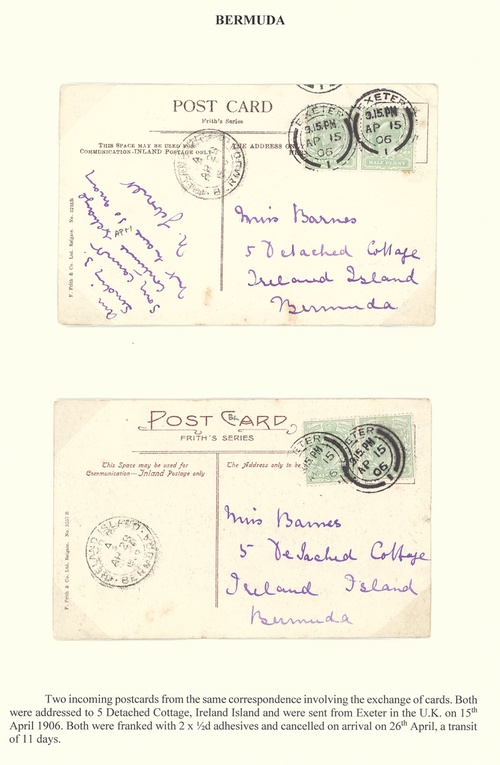 BERMUDA
POST CARD
Frith's Series
THIS SPACE MAY BE USED FOR
COMMUNICATION-INLAND POSTAGE ONLY
THE ADDRESS ONLY
EXETER
3.15.PM
AP 15
06
1
EXETER
3.15.PM
AP 15
06
1
HALF PENNY
BERMUDA
F. Frith & Co. Ltd. Reigate.
am
sending 3.
Sorry cannot exchange
not
so many
Miss Barnes
5 Detached Cottage
Ireland Island
Bermuda
POST CARD
FRITH'S SERIES
This Space may be used for
Communication—Inland Postage only
The Address only to be
ETER
15.PM
15
06
ETER
3.15.PM
AP 15
06
1
IRELAND ISLAND
BERMUDA
F. Frith & Co. Ltd. Reigate.
Miss Barnes
5 Detached Cottage
Ireland Island
Bermuda
Two incoming postcards from the same correspondence involving the exchange of cards. Both
were addressed to 5 Detached Cottage, Ireland Island and were sent from Exeter in the U.K. on 15th
April 1906. Both were franked with 2 x ½d adhesives and cancelled on arrival on 26th April, a transit
of 11 days.